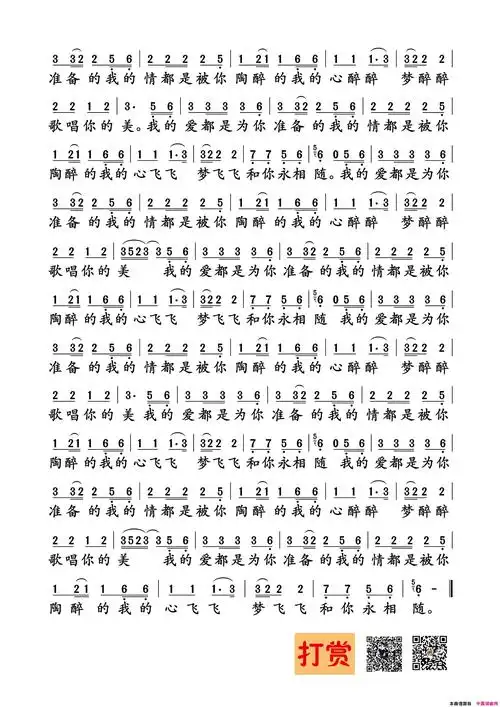 3 3 2 2 5 6 | 2 2 2 2 5 | 1 2 1 1 6 6 | 1 1 1·3 | 3 2 2 2 |
准备的我的情都是被你陶醉的我的心醉醉 梦醉醉
2 2 1 2 | 3· 5 6 | 3 3 3 3 6 | 3 3 2 2 5 6 | 2 2 2 2 5 |
歌唱你的美。我的爱都是为你准备的我的情都是被你
1 2 1 1 6 6 | 1 1 1·3 | 3 2 2 2 2 | 7 7 5 6 | 5 6 0 5 6 | 3 3 3 3 6 |
陶醉的我的心飞飞 梦飞飞和你永相随。我的爱都是为你
3 3 2 2 5 6 | 2 2 2 2 5 | 1 2 1 1 6 6 | 1 1 1·3 | 3 2 2 2 |
准备的我的情都是被你陶醉的我的心醉醉 梦醉醉
2 2 1 2 | 3 5 2 3 3 5 6 | 3 3 3 3 6 | 3 3 2 2 5 6 | 2 2 2 2 5 |
歌唱你的美 我的爱都是为你准备的我的情都是被你
1 2 1 1 6 6 | 1 1 1·3 | 3 2 2 2 2 | 7 7 5 6 | 5 6 0 5 6 | 3 3 3 3 6 |
陶醉的我的心飞飞 梦飞飞和你永相随 我的爱都是为你
3 3 2 2 5 6 | 2 2 2 2 5 | 1 2 1 1 6 6 | 1 1 1·3 | 3 2 2 2 |
准备的我的情都是被你陶醉的我的心醉醉 梦醉醉
2 2 1 2 | 3· 5 6 | 3 3 3 3 6 | 3 3 2 2 5 6 | 2 2 2 2 5 |
歌唱你的美 我的爱都是为你准备的我的情都是被你
1 2 1 1 6 6 | 1 1 1·3 | 3 2 2 2 2 | 7 7 5 6 | 5 6 0 5 6 | 3 3 3 3 6 |
陶醉的我的心飞飞 梦飞飞和你永相随 我的爱都是为你
3 3 2 2 5 6 | 2 2 2 2 5 | 1 2 1 1 6 6 | 1 1 1·3 | 3 2 2 2 |
准备的我的情都是被你陶醉的我的心醉醉 梦醉醉
2 2 1 2 | 3 5 2 3 3 5 6 | 3 3 3 3 6 | 3 3 2 2 5 6 | 2 2 2 2 5 |
歌唱你的美 我的爱都是为你准备的我的情都是被你
1 2 1 1 6 6 | 1 1 1·3 | 3 2 2 2 2 | 7 7 5 6 | 5 6 - ‖
陶醉的我的心飞飞 梦飞飞和你永相随。
打赏